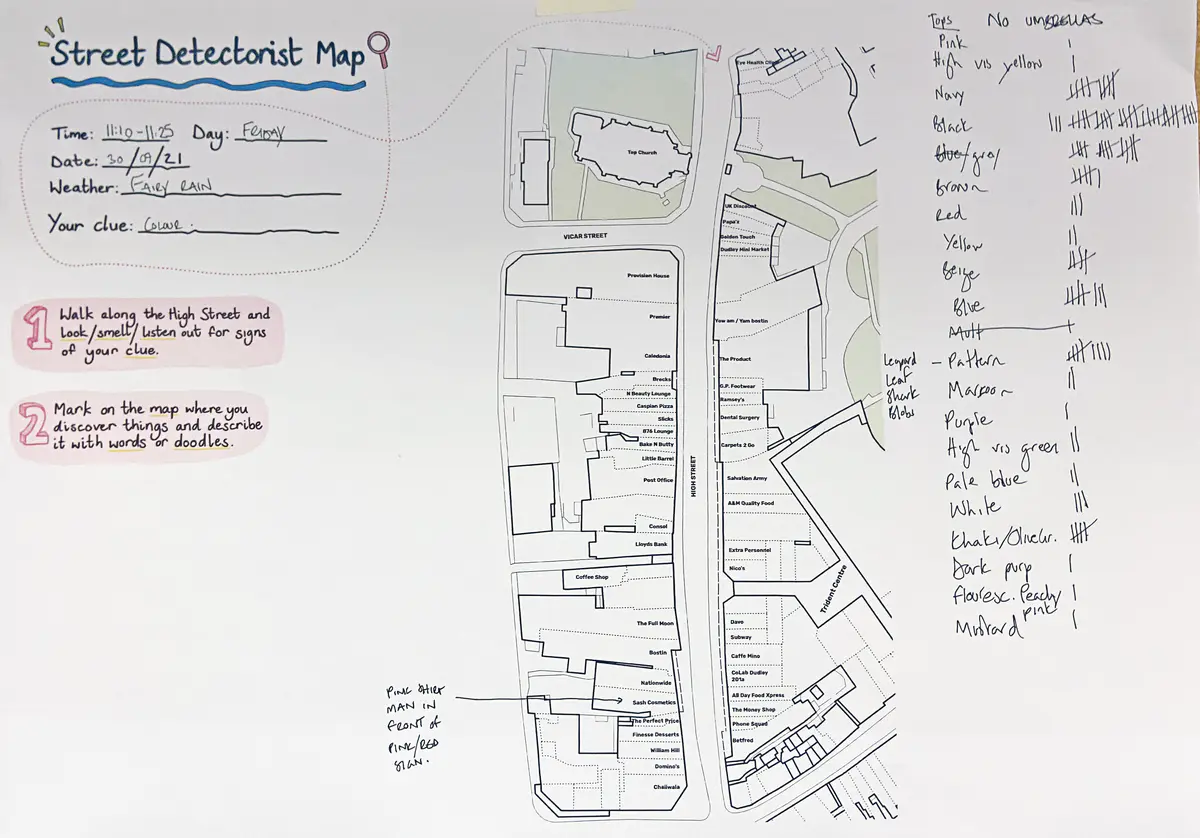 Street Detectorist Map
Time: 11:10-11:25 Day: FRIDAY
Date: 30/07/21
Weather: FAIRY RAIN
Your clue: COLOUR.
1 Walk along the High Street and
look/smell/listen out for signs
of your clue.
2 Mark on the map where you
discover things and describe
it with words or doodles.
Eye Health Clinic
Top Church
VICAR STREET
UK Discount
Papa's
Golden Touch
Dudley Mini Market
Provision House
Premier
Yow am / Yam bostin
Caledonia
The Product
Brooks
G.P. Footwear
N Beauty Lounge
Ramsey's
Caspian Pizza
Slicks
Dental Surgery
876 Lounge
Bake N Butty
Carpets 2 Go
Little Barrel
HIGH STREET
Post Office
Salvation Army
A&M Quality Food
Consol
Lloyds Bank
Extra Personnel
Nico's
Coffee Shop
Trident Centre
The Full Moon
Davo
Subway
Bostin
Caffe Mino
CoLab Dudley
201a
Nationwide
All Day Food Xpress
Sash Cosmetics
The Money Shop
The Perfect Price
Phone Squad
Finesse Desserts
Betfred
William Hill
Domino's
Chaiiwala
PINK SHIRT
MAN IN
FRONT OF
PINK/RED
SIGN.
Tops NO UMBRELLAS
Pink
High vis yellow
Navy
Black
Blue/grey
Brown
Red
Yellow
Beige
Blue
Mult
Leopard
Leaf
Shark
Blobs
- Pattern
Maroon
Purple
High vis green
Pale blue
White
Khaki/OliveGr.
Dark purp
flouresc. Peachy
pink
Mustard